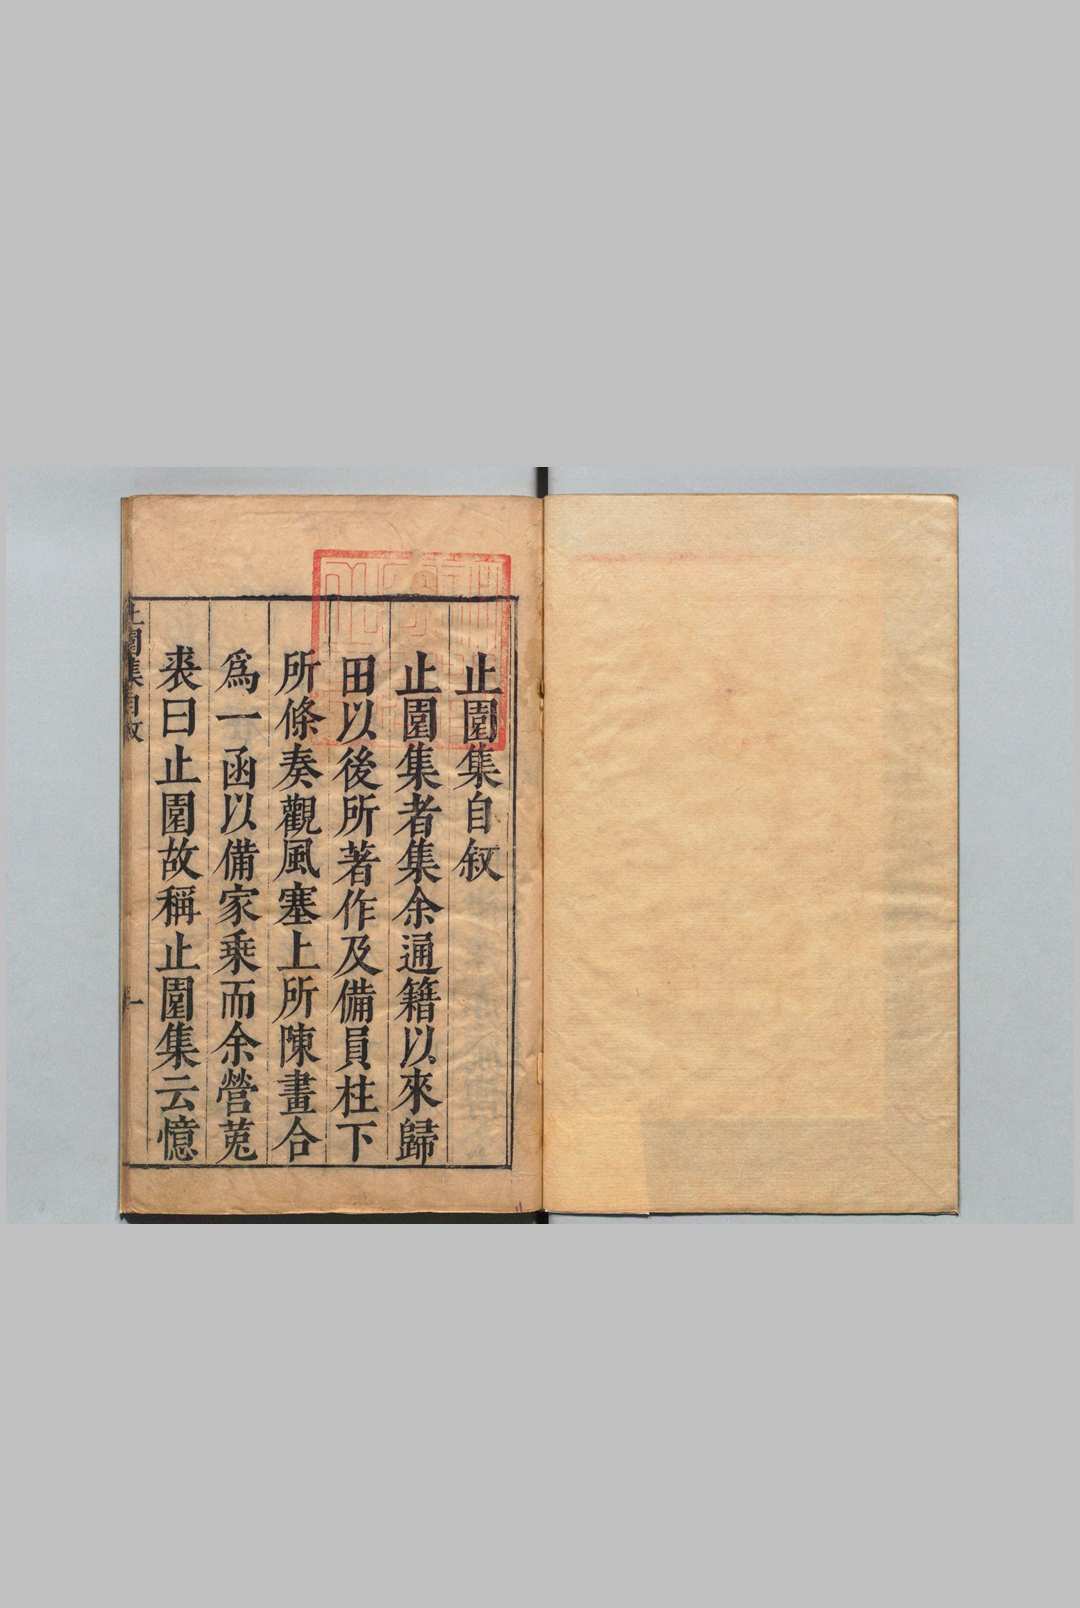 止園集自敘
止園集者集余通籍以來歸
田以後所著作及備員柱下
所條奏觀風塞上所陳畫合
爲一函以備家乗而余營菟
裘曰止園故稱止園集云憶
止園集自敘
一